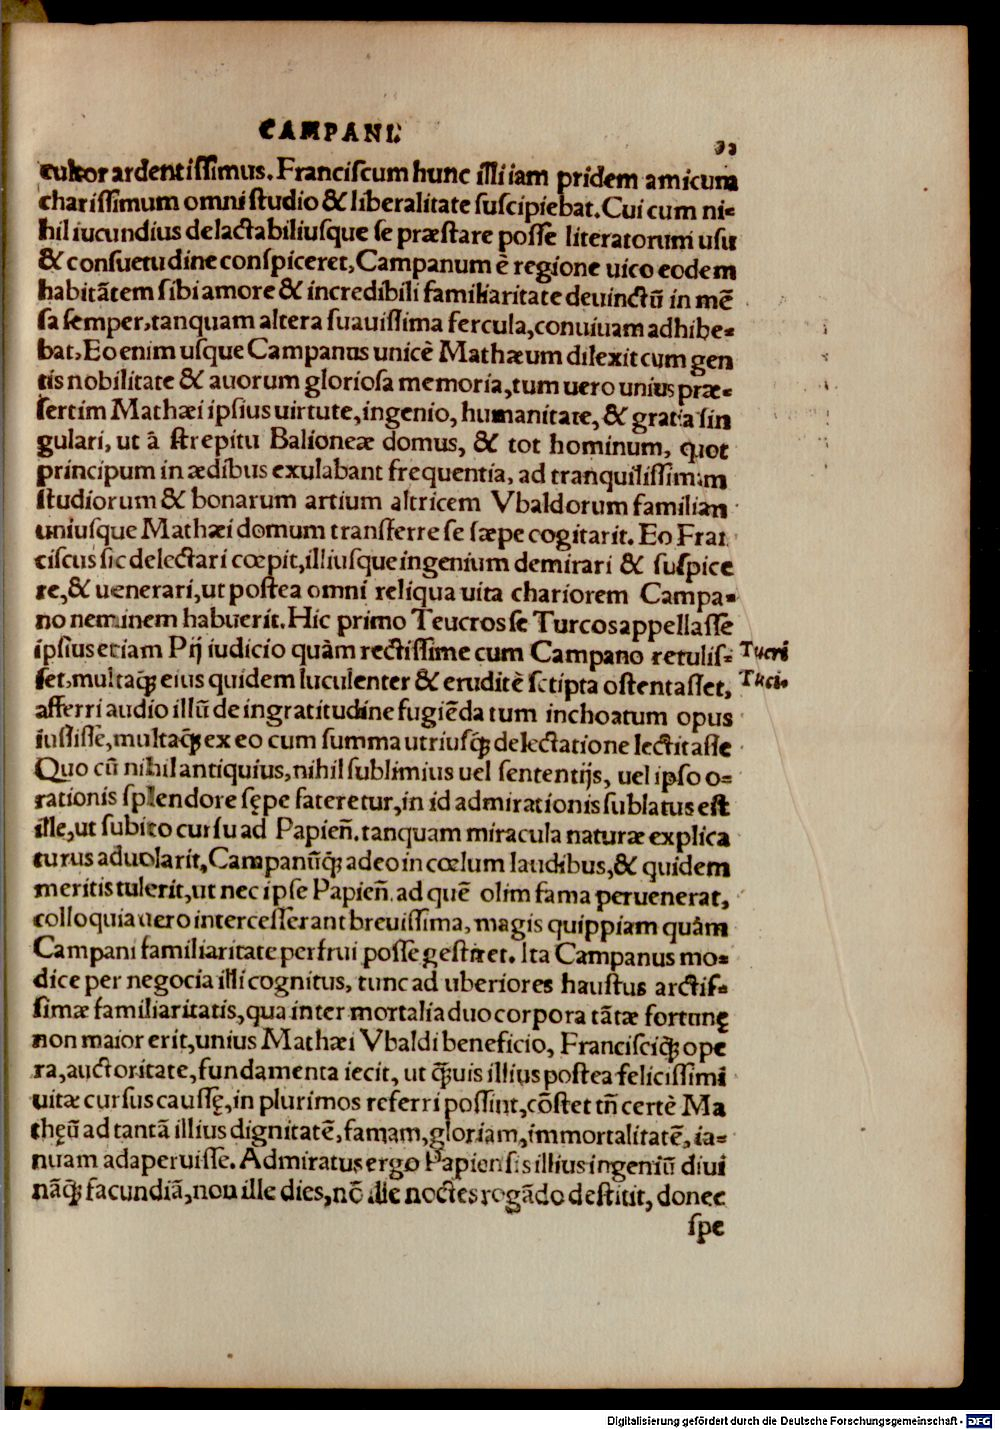 CAMPANI.
33
cultor ardentissimus. Franciscum hunc illi iam pridem amicum
charissimum omni studio & liberalitate suscipiebat. Cui cum ni=
hil iucundius delactabiliusque se præstare posse literatorum usu
& consuetudine conspiceret, Campanum è regione uico eodem
habitãtem sibi amore & incredibili familiaritate deuinctũ in mẽ
sa semper, tanquam altera suauissima fercula, conuiuam adhibe=
bat. Eo enim usque Campanus unicè Mathæum dilexit cum gen
tis nobilitate & auorum gloriosa memoria, tum uero unius præ=
sertim Mathæi ipsius uirtute, ingenio, humanitate, & gratia sin
gulari, ut ã strepitu Balioneæ domus, & tot hominum, quot
principum in ædibus exulabant frequentia, ad tranquilissimam
studiorum & bonarum artium altricem Vbaldorum familian
uniusque Mathæi domum transferre se sæpe cogitarit. Eo Fran
ciscus sic delectari cœpit, illiusque ingenium demirari & suspice
re, & uenerari, ut postea omni reliqua uita chariorem Campa=
no neminem habuerit. Hic primo Teucros se Turcos appellasse
ipsius etiam Pij iudicio quàm rectissime cum Campano retulis= Tucri
set, multaq́; eius quidem luculenter & eruditè sctipta ostentasset, Tuci.
afferri audio illũ de ingratitudine fugiẽda tum inchoatum opus
iussisse, multaq́; ex eo cum summa utriusq́; delectatione lectitasse
Quo cũ nihil antiquius, nihil sublimius uel sententijs, uel ipso o=
rationis splendore sępe fateretur, in id admirationis sublatus est
ille, ut subito cursu ad Papieñ. tanquam miracula naturæ explica
turus aduolarit, Campanũq́; adeo in cœlum laudibus, & quidem
meritis tulerit, ut nec ipse Papieñ. ad quẽ olim fama peruenerat,
colloquia uero intercesserant breuissima, magis quippiam quâm
Campani familiaritate perfrui posse gestiret. Ita Campanus mo=
dice per negocia illi cognitus, tunc ad uberiores haustus arctis=
simæ familiaritatis, qua inter mortalia duo corpora tãtæ fortunę
non maior erit, unius Mathæi Vbaldi beneficio, Franciściq́; ope
ra, auctoritate, fundamenta iecit, ut q̃uis illius postea felicissimi
uitæ cursus caussę, in plurimos referri possint, cõstet tñ certè Ma
thęũ ad tantã illius dignitatẽ, famam, gloriam, immortalitatẽ, ia=
nuam adaperuisse. Admiratus ergo Papiensis illius ingeniũ diui
nãq́; facundiã, non ille dies, nõ ille noctes rogãdo destitit, donec
spe
Digitalisierung gefördert durch die Deutsche Forschungsgemeinschaft - DFG